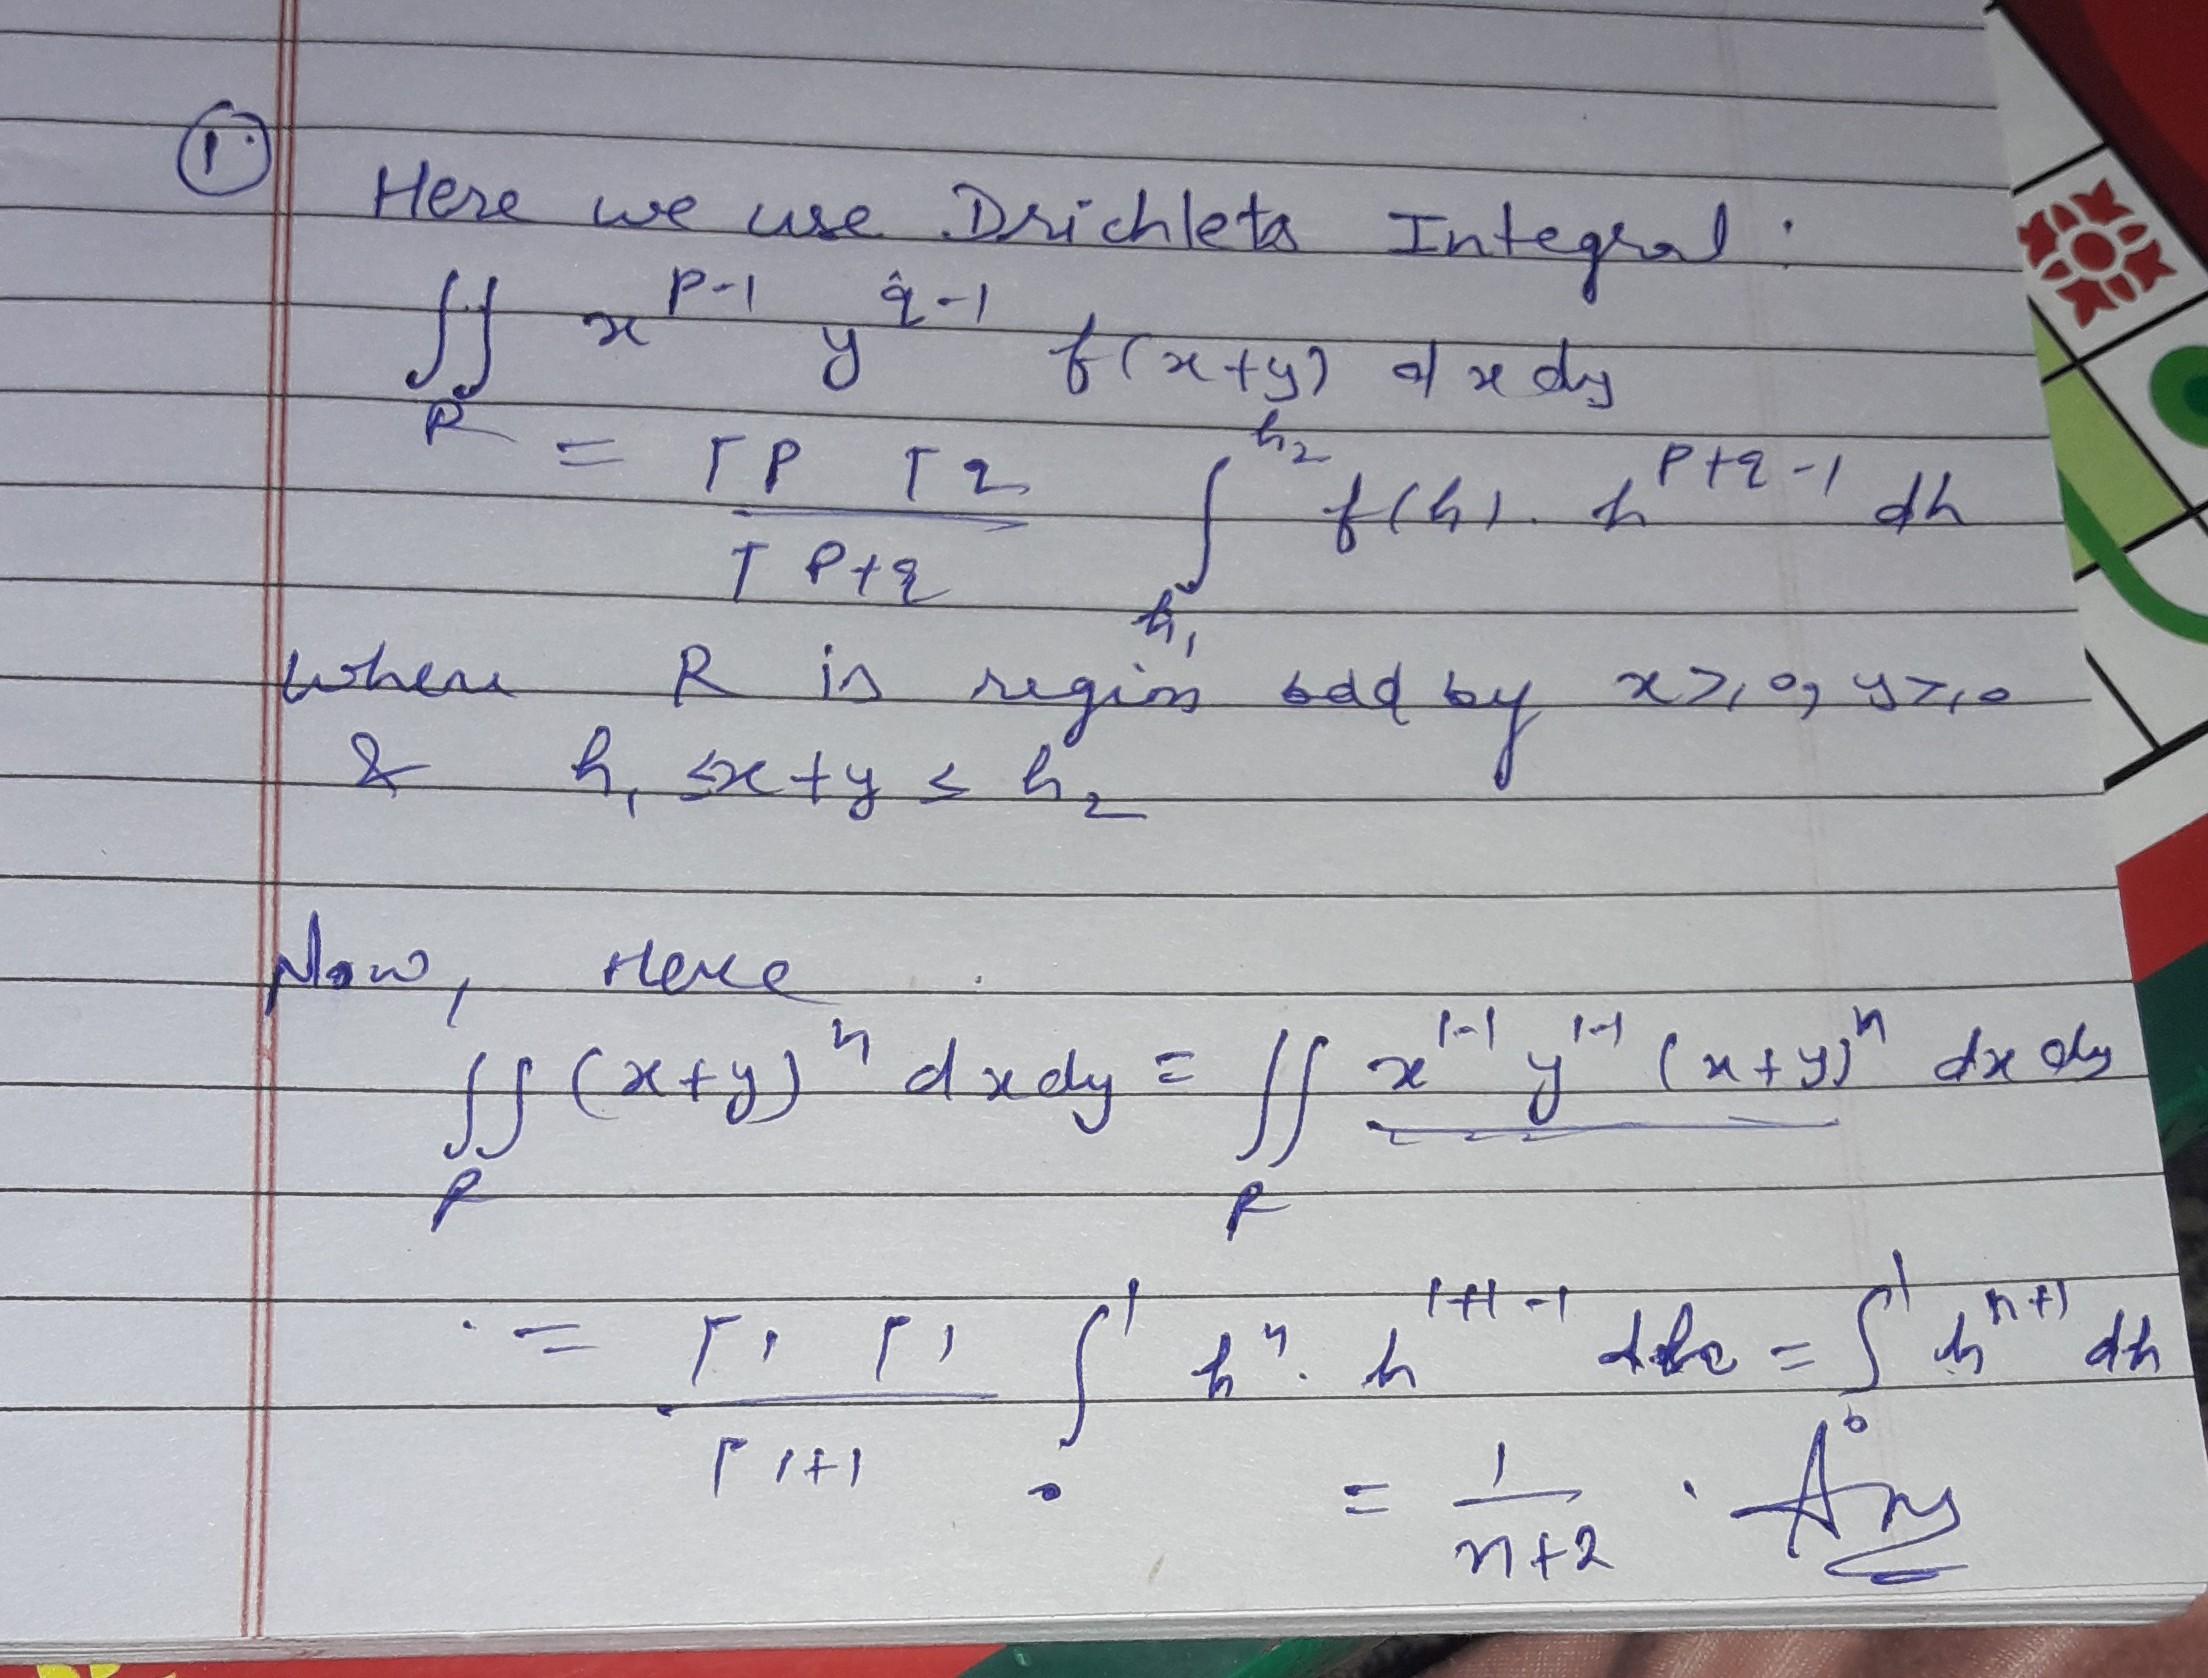 1.
Here we use Drichlets Integral:
∬_R x^{p-1} y^{q-1} f(x+y) dx dy
= Γp Γq / Γp+q ∫_{h₁}^{h₂} f(h). h^{p+q-1} dh
where R is region bdd by x≥0, y≥0
& h₁ ≤ x+y ≤ h₂
Now, Here
∬_R (x+y)^n dx dy = ∬_R x^{1-1} y^{1-1} (x+y)^n dx dy
= Γ1 Γ1 / Γ1+1 ∫_0^1 h^n. h^{1+1-1} dh = ∫_0^1 h^{n+1} dh
= 1/n+2 . Ans